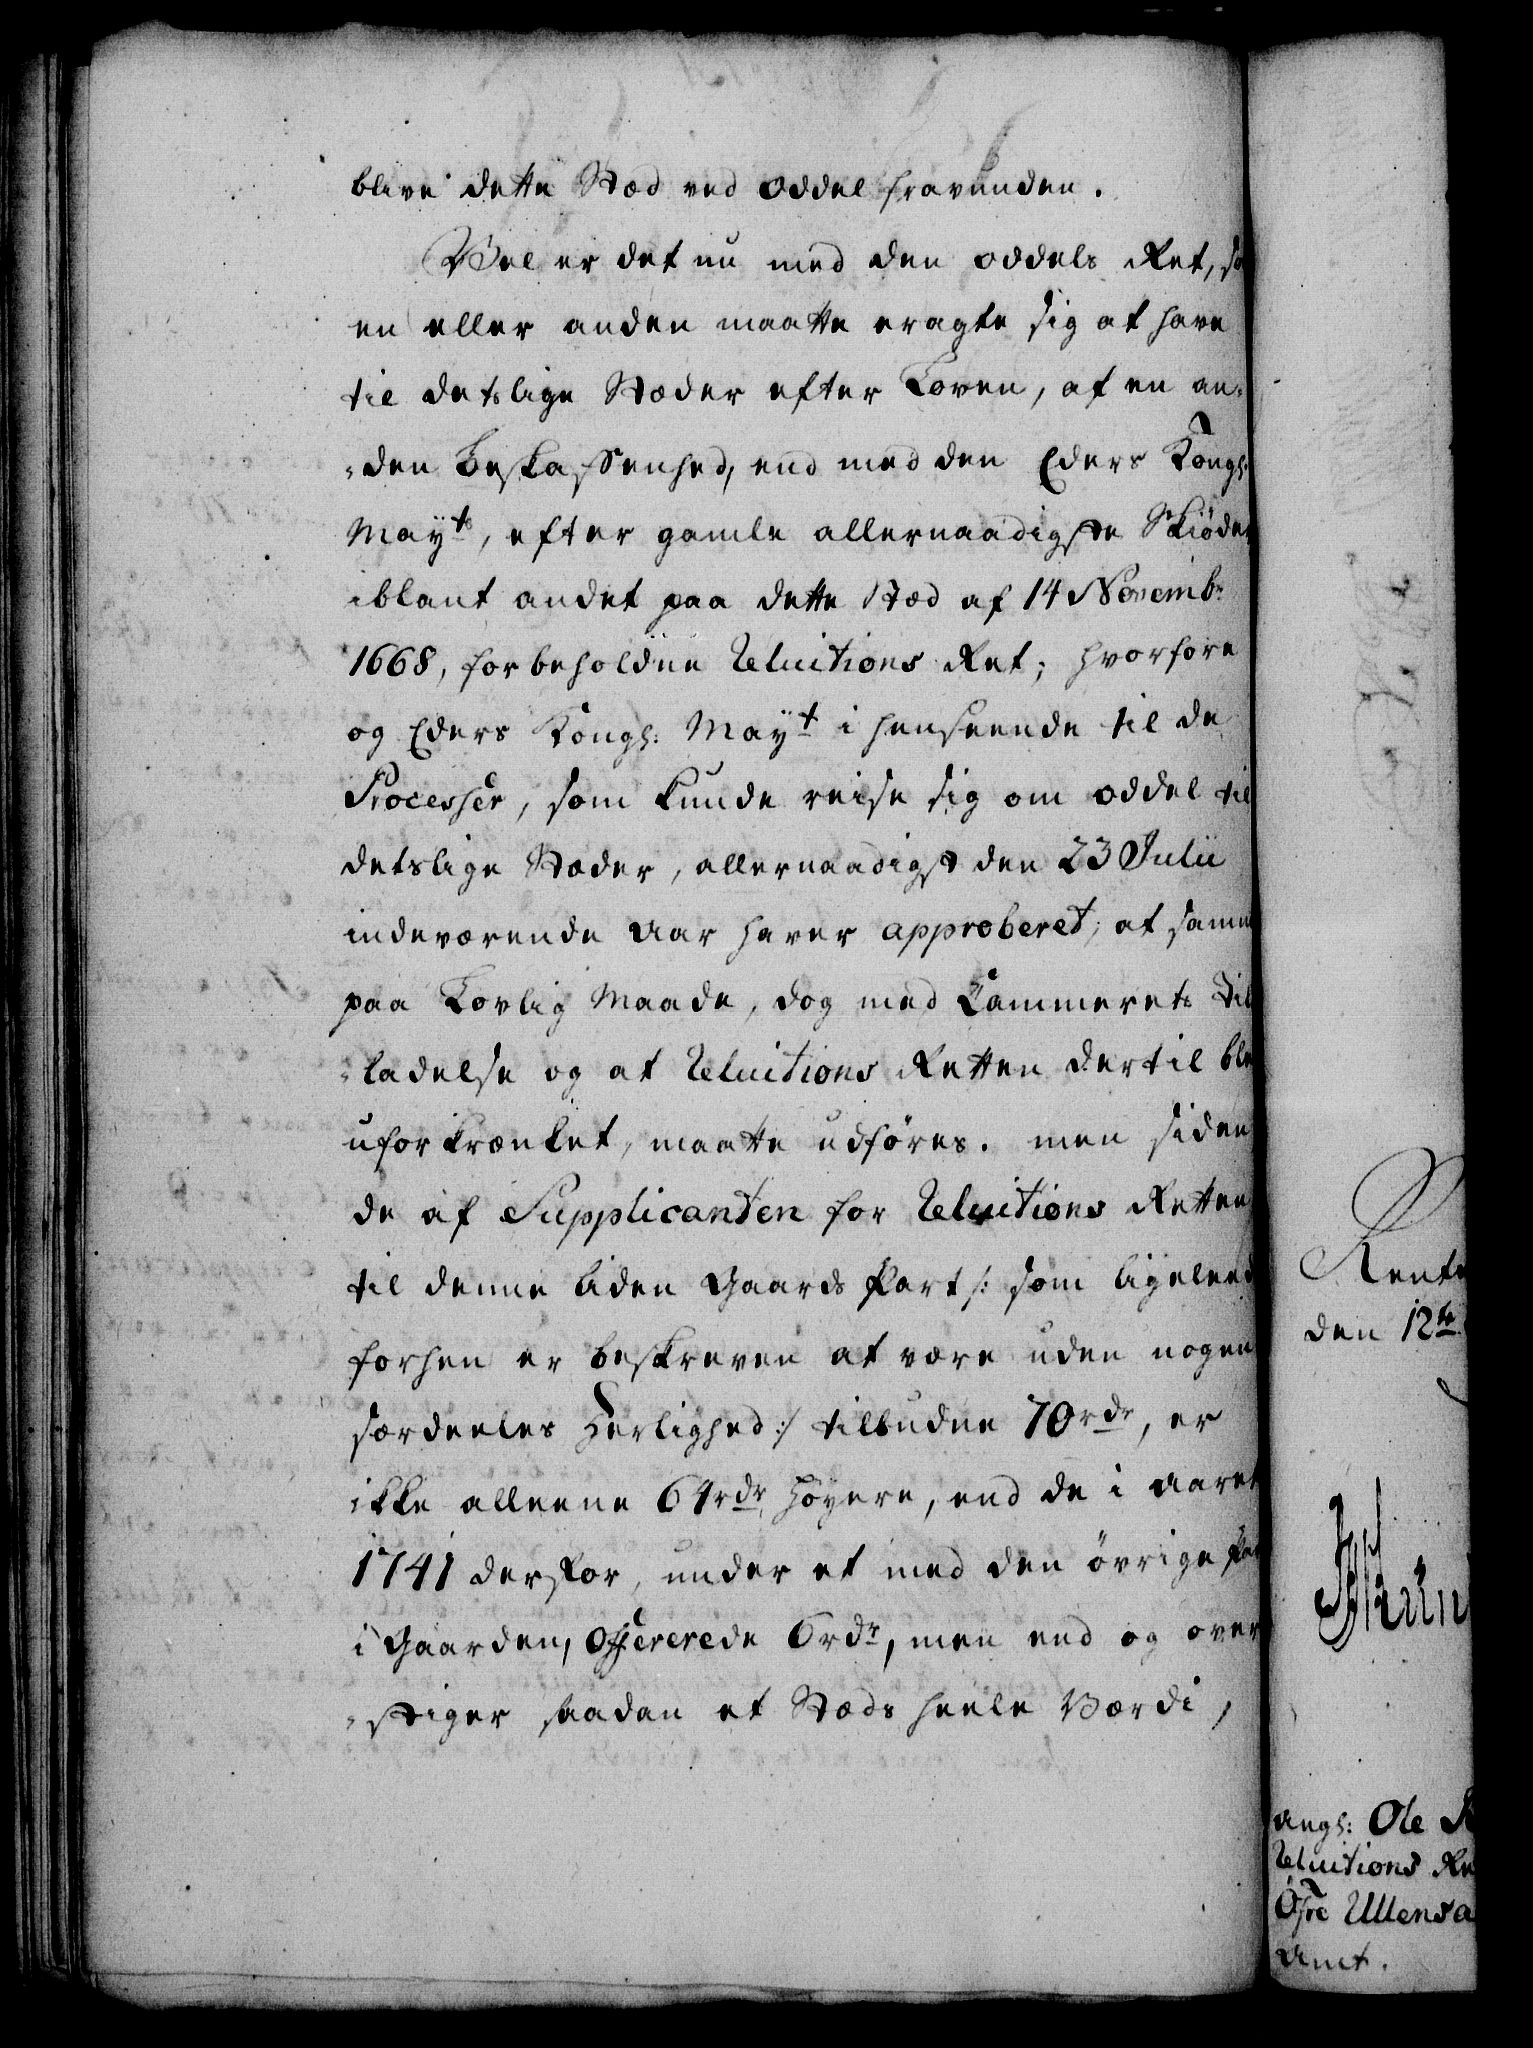 blive dette Stæd ved Oddel fravunden.
Vel er det nu med den Oddels Ret, so
en eller anden maatte eragte sig at have
til detslige Stæder efter Loven, af en an-
-den Beskaffenhed, end med den Eders Kongl:
Mayts, efter gamle allernaadigste Skiöder
iblant andet paa dette Stæd af 14 Novembr:
1668, forbeholdne Reluitions Ret; hvorfore
og Eders Kongl: Mayt i henseende til de
Processer, som kunde reise sig om Oddel til
detslige Stæder, allernaadigst den 23 Julii
indeværende Aar haver approberet, at samme
paa Lovlig Maade, dog med Cammerets Til
-ladelse og at Reluitions Retten dertil ble
uforkrænket, maatte udföres. men siden
de af Supplicanten for Reluitions Retten
til denne liden Gaards Part /: som ligeleed
forhen er beskreven at være uden nogen
særdeeles Herlighed :/ tilbudne 70 rdr, er
ikke alleene 64 rdr höyere, end de i Aaret
1741 derfor, under et med den övrige Par
i Gaarden, Offererede 6 rdr, men end og over
-stiger saadan et Stæds heele Værdi,
Rente
den 12te
angl: Ole
Reluitions Re
Öfre Ullensa
Amt.